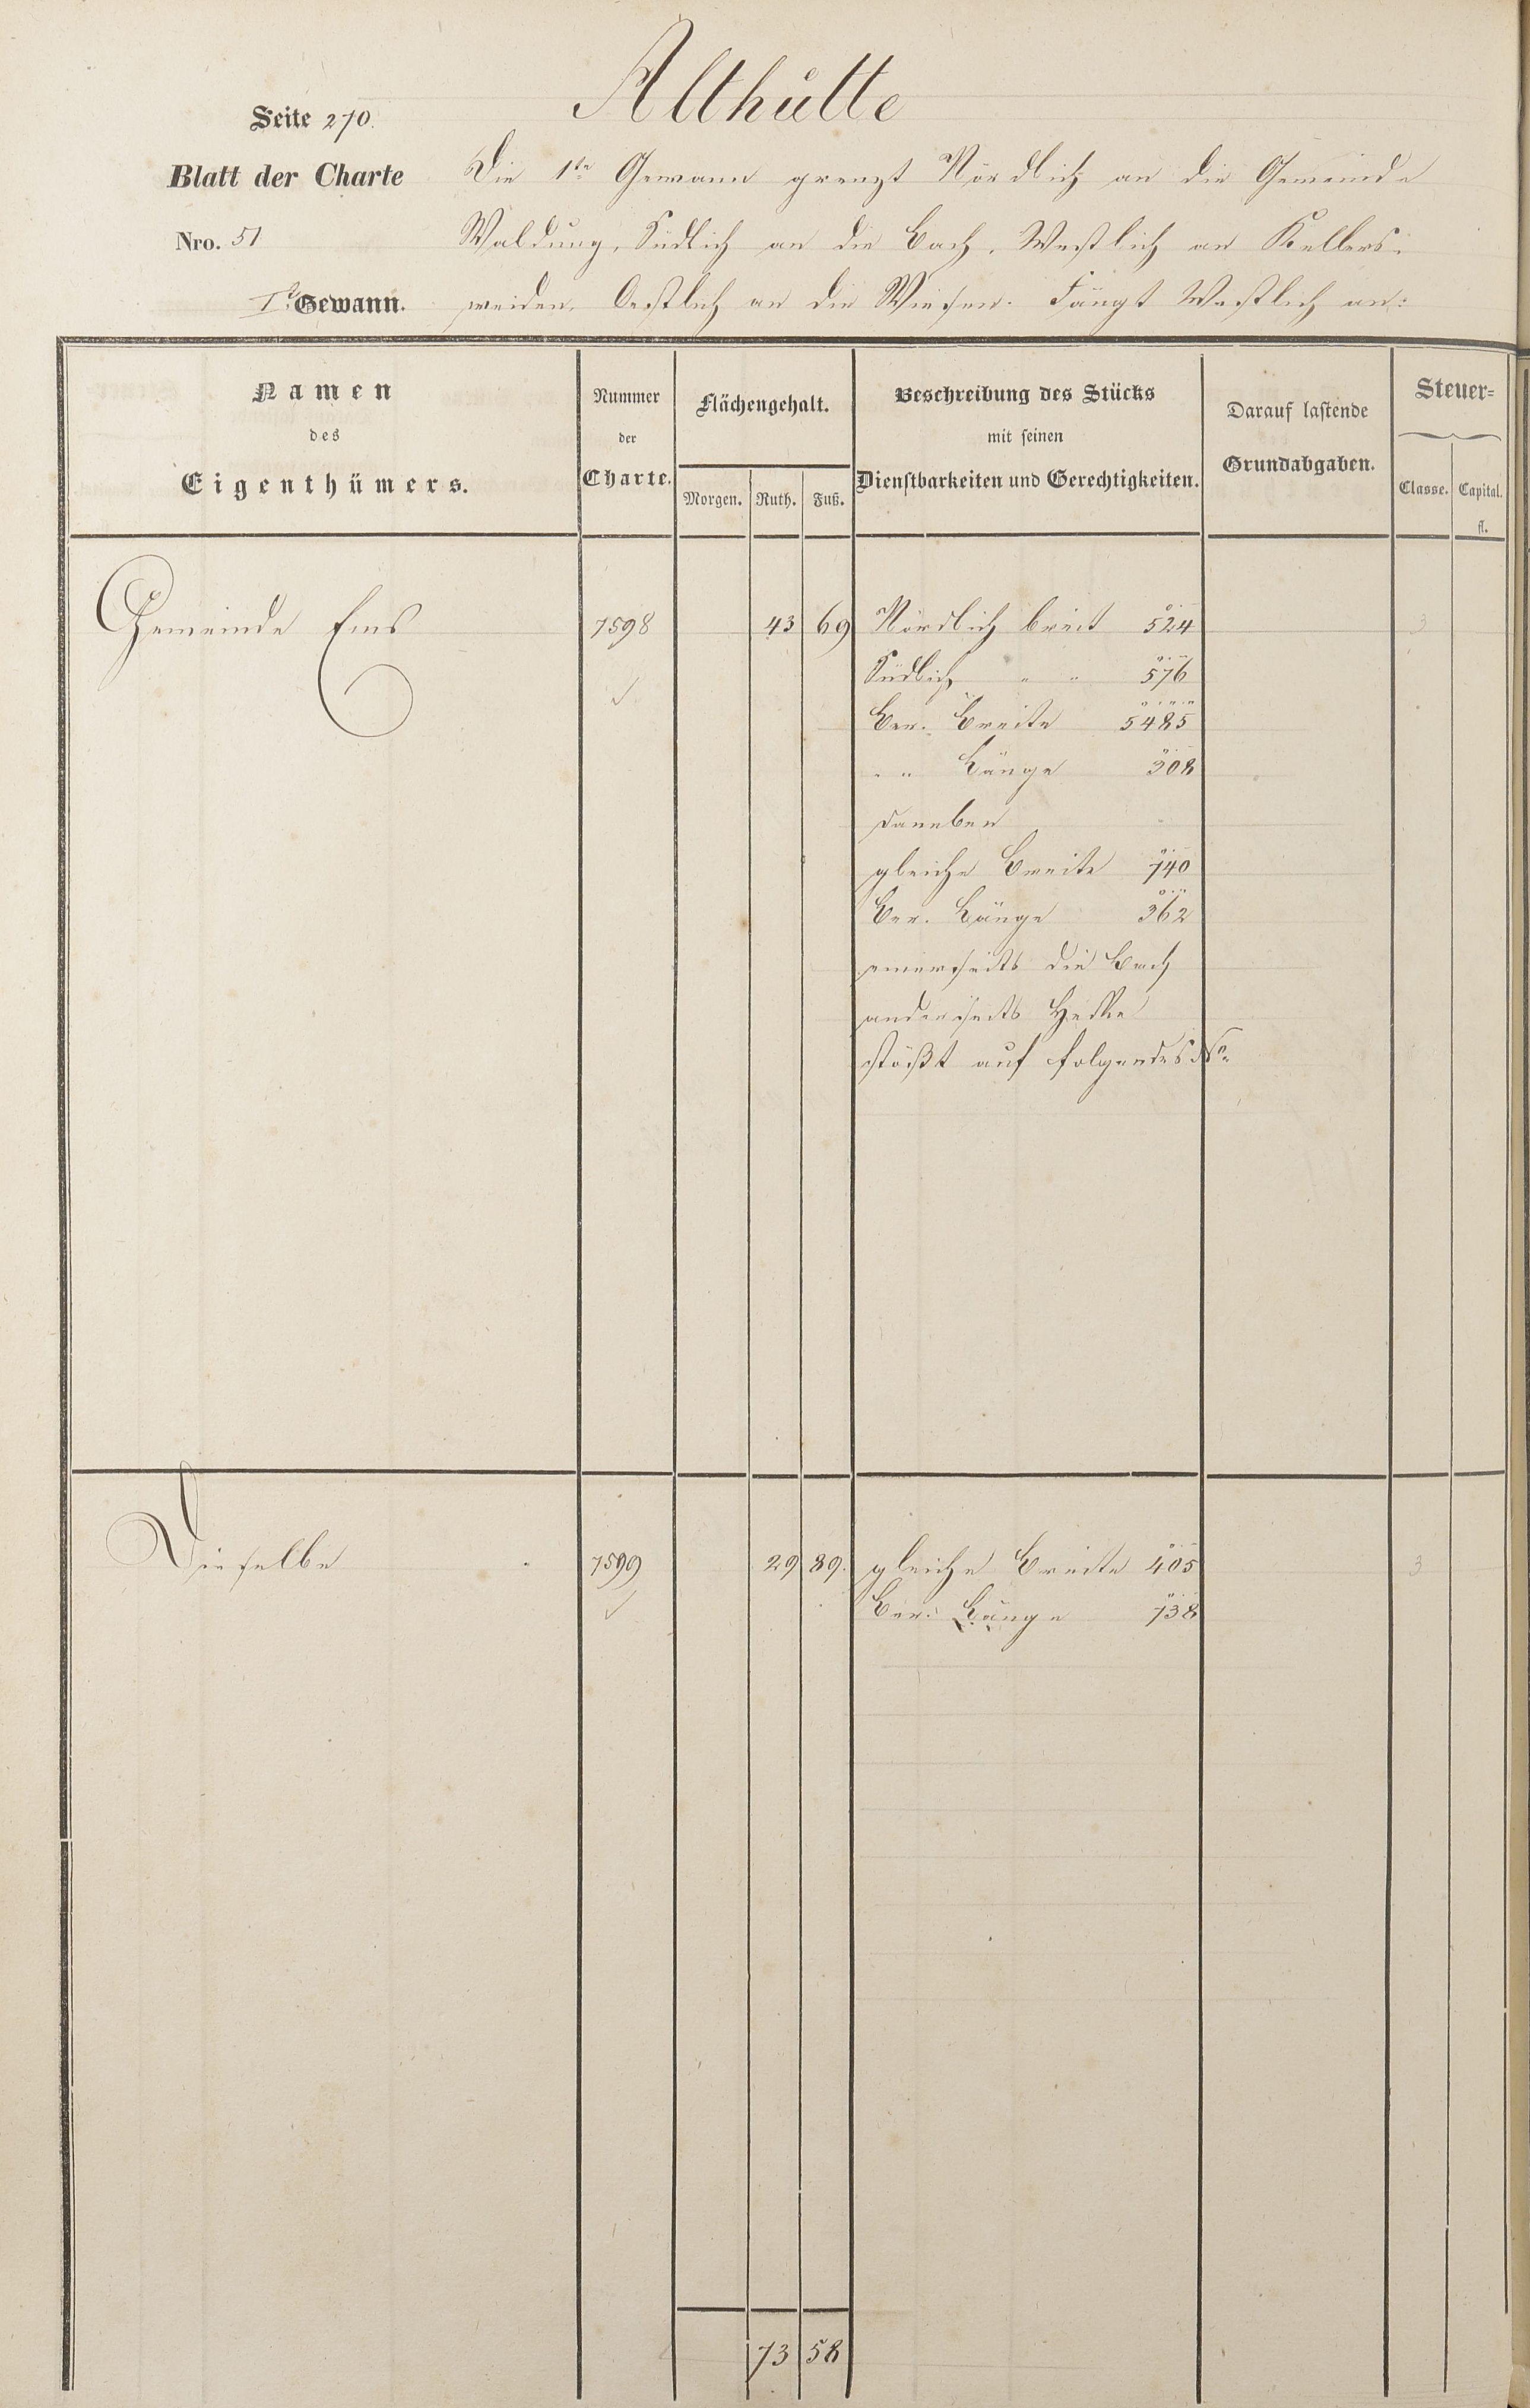 Althütte
Seite 270.
Blatt der Charte
Nro. 51
Ite Gewann.
Die 1te Gewann grenzt Nördlich an die Gemeinde
Waldung, Südlich an die Bach, Westlich an Kellers-
weiden, Oestlich an die Wiesen. Fängt Westlich an:
Namen
des
Eigenthümers.
Nummer
der
Charte.
Flächengehalt.
Morgen. Ruth. Fuß.
Beschreibung des Stücks
mit seinen
Dienstbarkeiten und Gerechtigkeiten.
Darauf lastende
Grundabgaben.
Steuer-
Classe. Capital.
fl.
Gemeinde Ems 7598 43 69 Nördlich breit 524 3
Südlich " " 576
Ber. Breite 5485
" " Länge 308
daneben
gleiche Breite 740
Ber. Länge 362
einerseits die Bach
anderseits Hecke
stößt auf folgendes No.
Dieselbe 7599 29 89. gleiche Breite 405 3
Ber. Länge 738
73 58